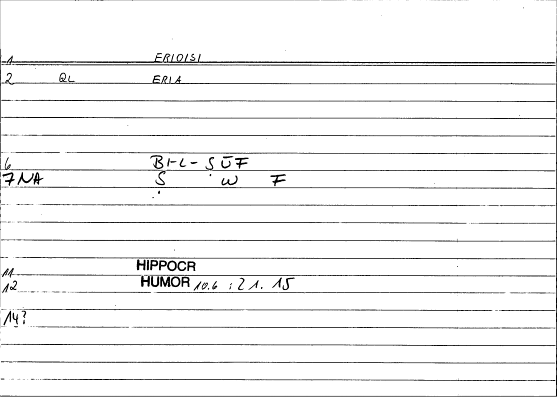 1 ERIOISI
2 QL ERIA
6 BI-L-ṢŪF
7 NA Ṣ W F
11 HIPPOCR
12 HUMOR 10.6 : 21. 15
14?